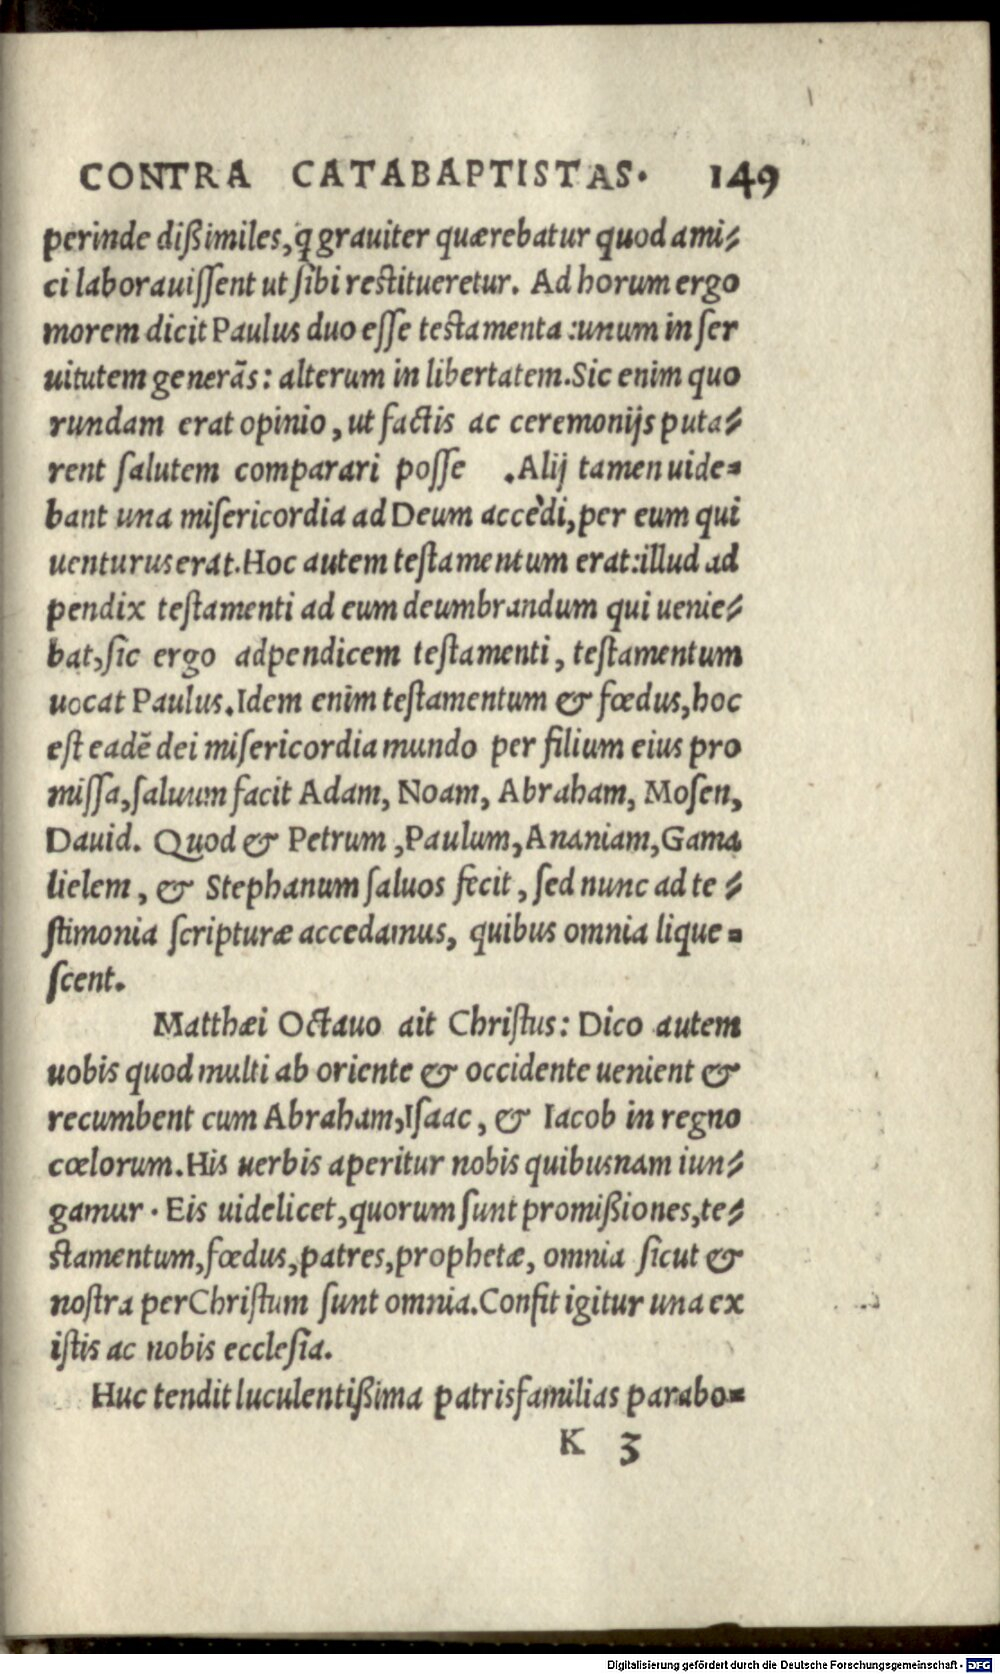 CONTRA CATABAPTISTAS. 149
perinde dißimiles, q̃ grauiter quærebatur quod ami⸗
ci laborauiſſent ut ſibi reſtitueretur. Ad horum ergo
morem dicit Paulus duo eſſe teſtamenta :unum in ſer
uitutem generãs: alterum in libertatem. Sic enim quo
rundam erat opinio, ut factis ac ceremonijs puta⸗
rent ſalutem comparari poſſe . Alij tamen uide⸗
bant una miſericordia ad Deum accèdi, per eum qui
uenturus erat. Hoc autem teſtamentum erat: illud ad
pendix teſtamenti ad eum deumbrandum qui uenie⸗
bat, ſic ergo adpendicem teſtamenti, teſtamentum
uocat Paulus. Idem enim teſtamentum & fœdus, hoc
eſt eadē dei miſericordia mundo per filium eius pro
miſſa, ſaluum facit Adam, Noam, Abraham, Moſen,
Dauid. Quod & Petrum , Paulum, Ananiam, Gama
lielem, & Stephanum ſaluos fecit, ſed nunc ad te⸗
ſtimonia ſcripturæ accedamus, quibus omnia lique⸗
ſcent.
Matthæi Octauo ait Chriſtus: Dico autem
uobis quod multi ab oriente & occidente uenient &
recumbent cum Abraham, Iſaac, & Iacob in regno
cœlorum. His uerbis aperitur nobis quibusnam iun⸗
gamur. Eis uidelicet, quorum ſunt promißiones, te⸗
ſtamentum, fœdus, patres, prophetæ, omnia ſicut &
noſtra per Chriſtum ſunt omnia. Confit igitur una ex
iſtis ac nobis eccleſia.
Huc tendit luculentißima patrisfamilias parabo⸗
K 3
Digitalisierung gefördert durch die Deutsche Forschungsgemeinschaft - DFG